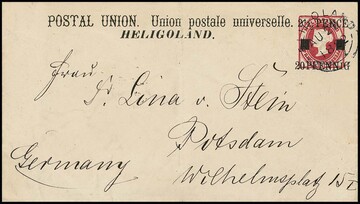 POSTAL UNION. Union postale universelle. 2½ PENCE
HELIGOLAND.
20 PFENNIG
Frau
Lina v. Stein
Potsdam
Germany
Wilhelmsplatz 15 I